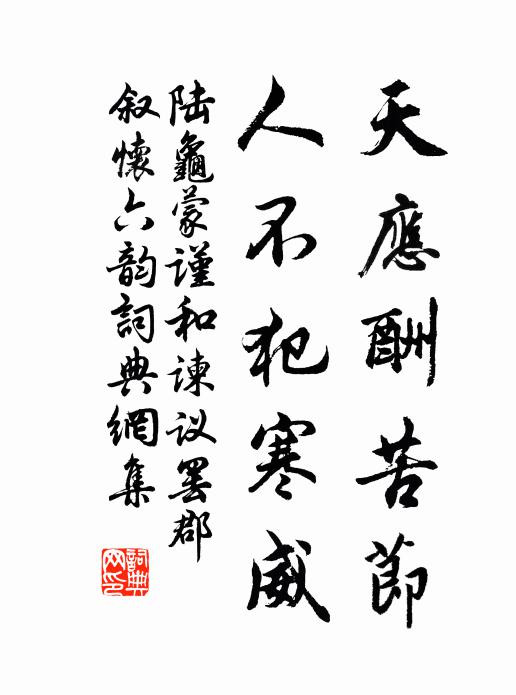 天應酬苦節
人不犯寒威
陆龜蒙谨和谏议罢郡
叙懷六韵詞典網集
詞典網印